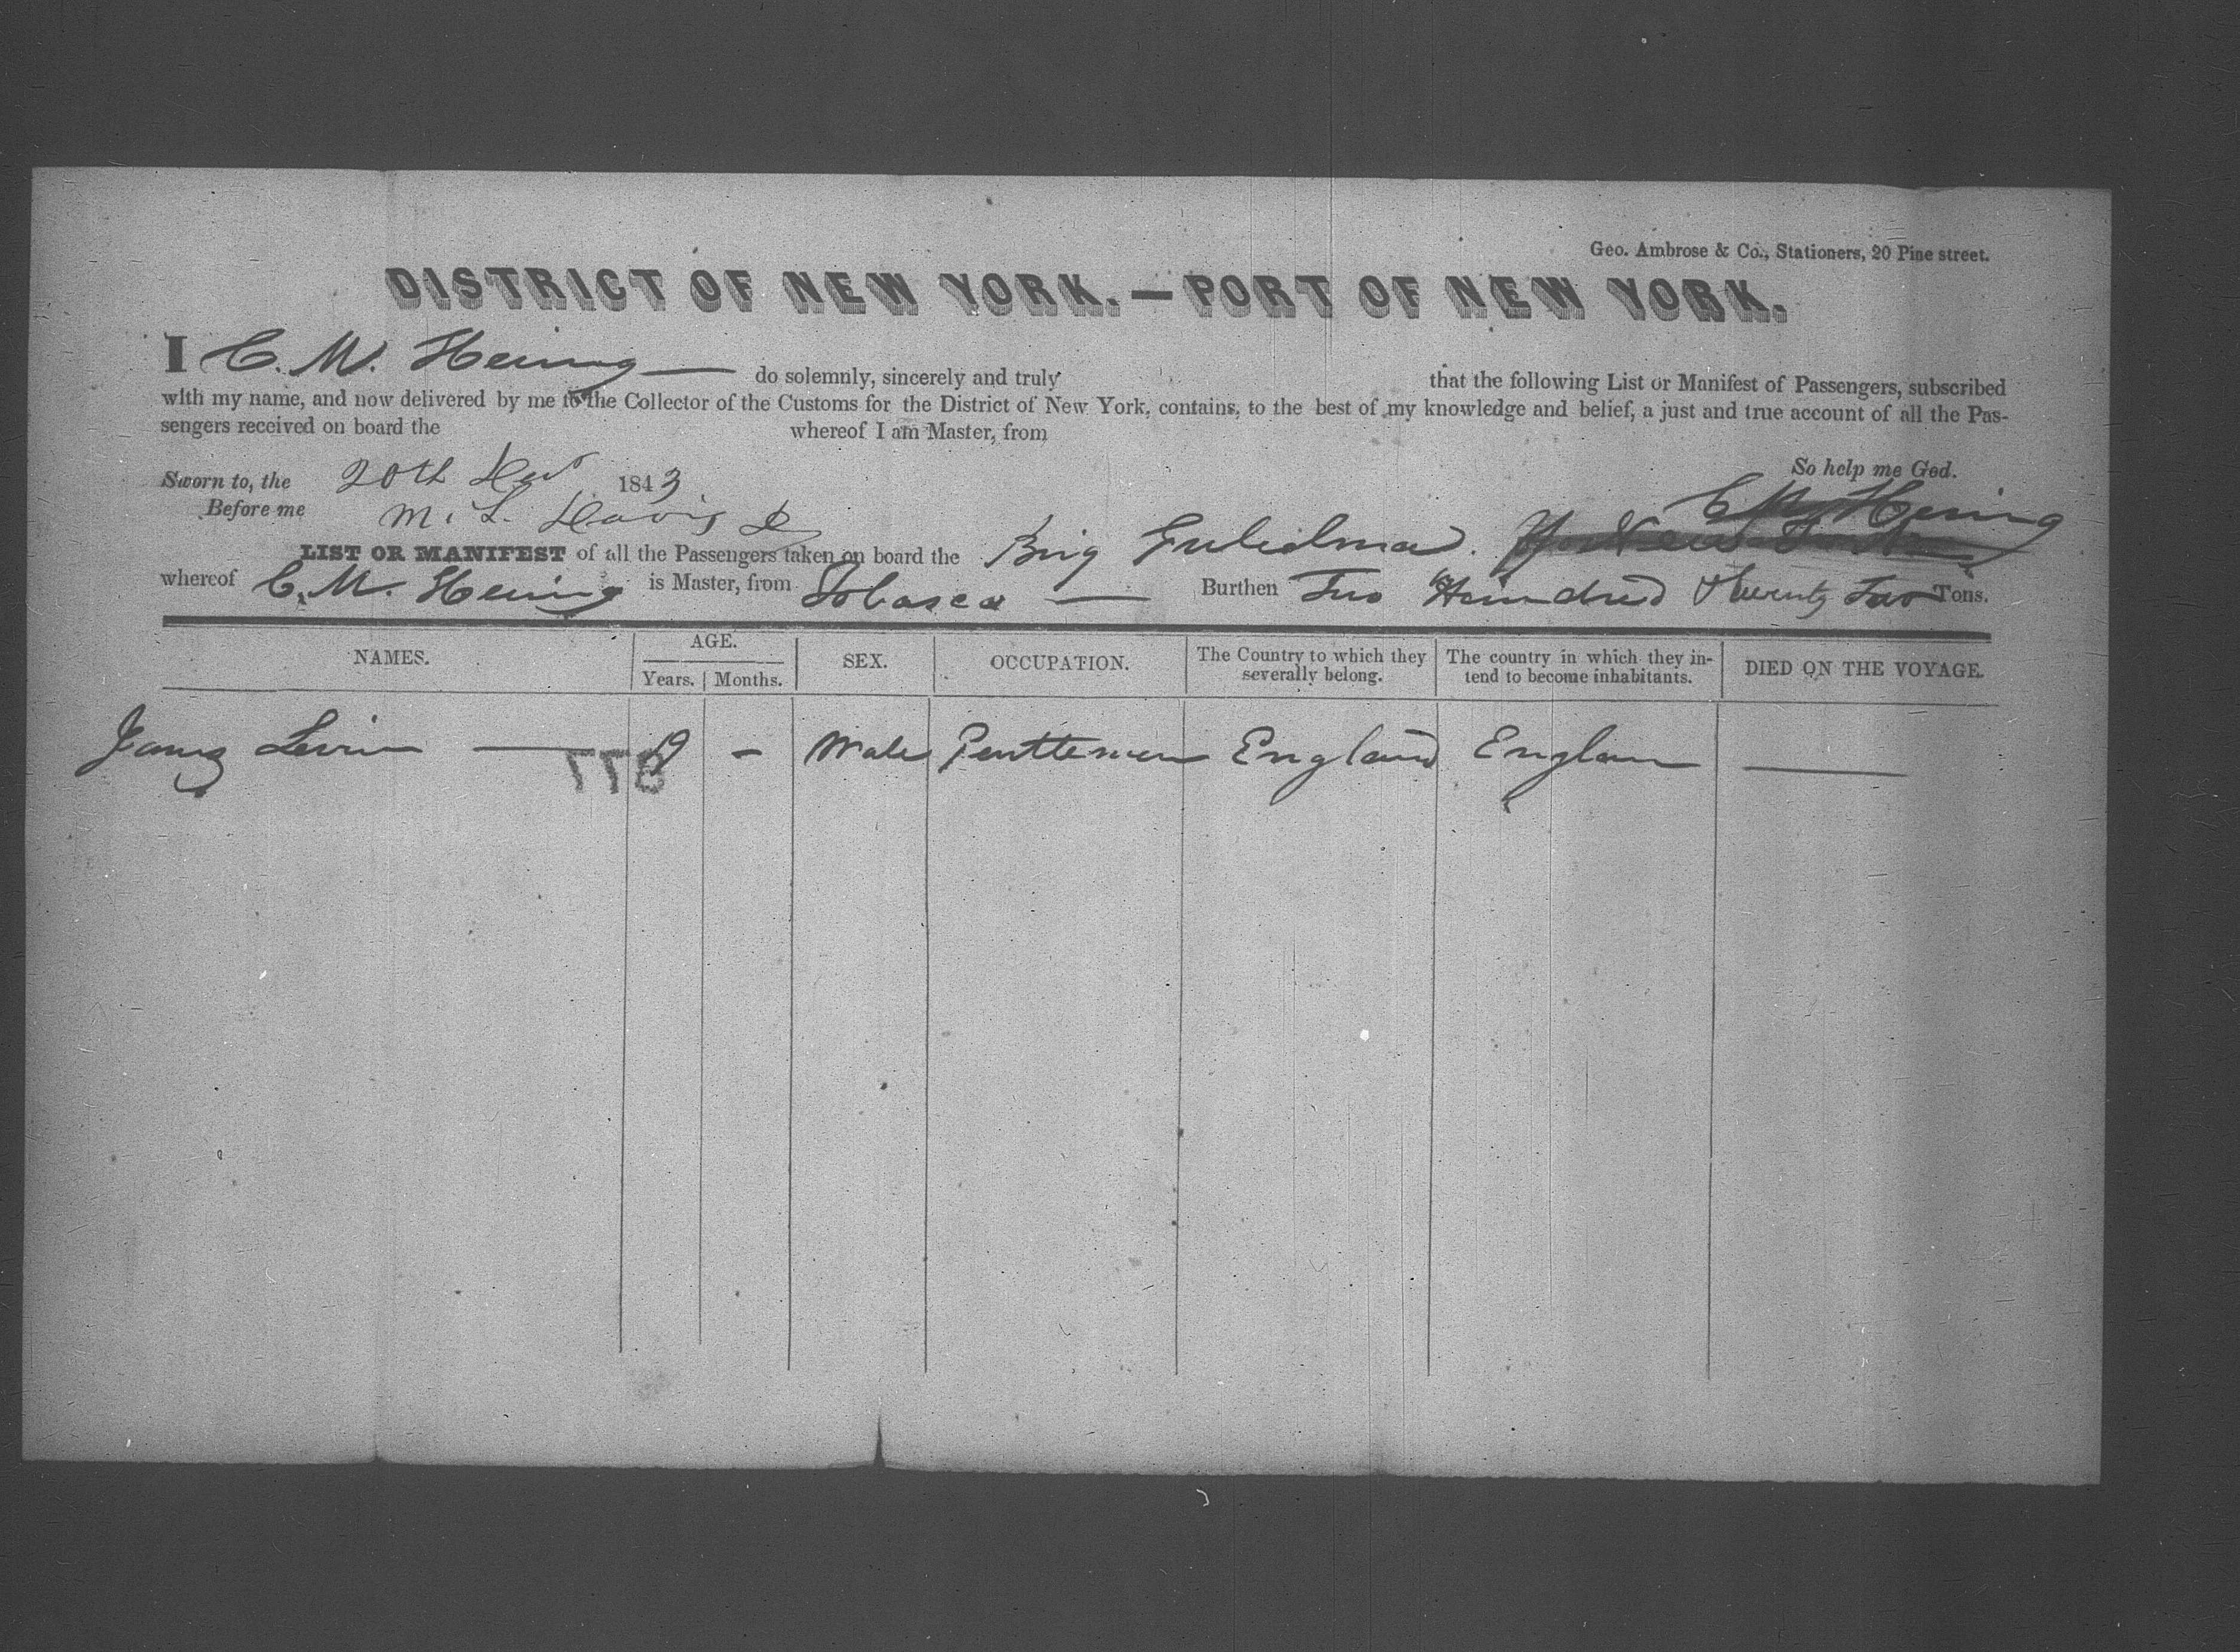 Geo. Ambrose & Co., Stationers, 20 Pine street.
DISTRICT OF NEW YORK.—PORT OF NEW YORK.
I C. M. Hering — do solemnly, sincerely and truly that the following List or Manifest of Passengers, subscribed
with my name, and now delivered by me to the Collector of the Customs for the District of New York, contains, to the best of my knowledge and belief, a just and true account of all the Pas-
sengers received on board the whereof I am Master, from
So help me God.
Sworn to, the 20th 1843
C M Hering
Before me M. L. Davis
LIST OR MANIFEST of all the Passengers taken on board the Brig
whereof C. M. Hering is Master, from Tobasco — Burthen Two Hundred Twenty Two Tons.
NAMES. AGE. SEX. OCCUPATION. The Country to which they severally belong. The country in which they in-tend to become inhabitants. DIED ON THE VOYAGE.
Years. Months.
James — - Male Gentleman England England —